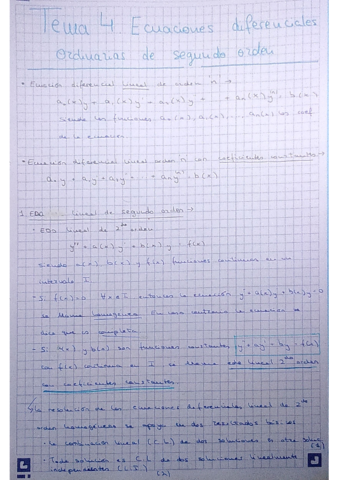 Tema 4 Ecuaciones diferenciales
ordinarias de segundo orden
• Ecuación diferencial lineal de orden "n" →
a₀(x)y + a₁(x)y' + a₂(x)y'' + ... + aₙ(x)y⁽ⁿ⁾ = b(x)
siendo las funciones a₀(x), a₁(x), ..., aₙ(x) los coef
de la ecuación
• Ecuación diferencial lineal orden n con coeficientes constantes →
a₀y + a₁y' + a₂y'' + ... + aₙy⁽ⁿ⁾ = b(x)
1. EDO lineal de segundo orden →
• EDO lineal de 2do orden
y'' + a(x)y' + b(x)y = f(x)
siendo a(x), b(x) y f(x) funciones continuas en un
intervalo I
• Si f(x)=0 ∀x∈I entonces la ecuación y''+a(x)y'+b(x)y=0
se llama homogénea. En caso contrario la ecuación se
dice que es completa.
• Si a(x) y b(x) son funciones constantes, y''+ay'+by=f(x)
con f(x) continua en I se llama edo lineal 2do orden
con coeficientes constantes.
La resolución de las ecuaciones diferenciales lineal de 2do
orden homogéneas se apoya en dos resultados básicos
• La combinación lineal (C.L.) de dos soluciones es otra soluc. (1)
• Toda solución es C.L de dos soluciones linealmente
independientes (L.I.) (2)